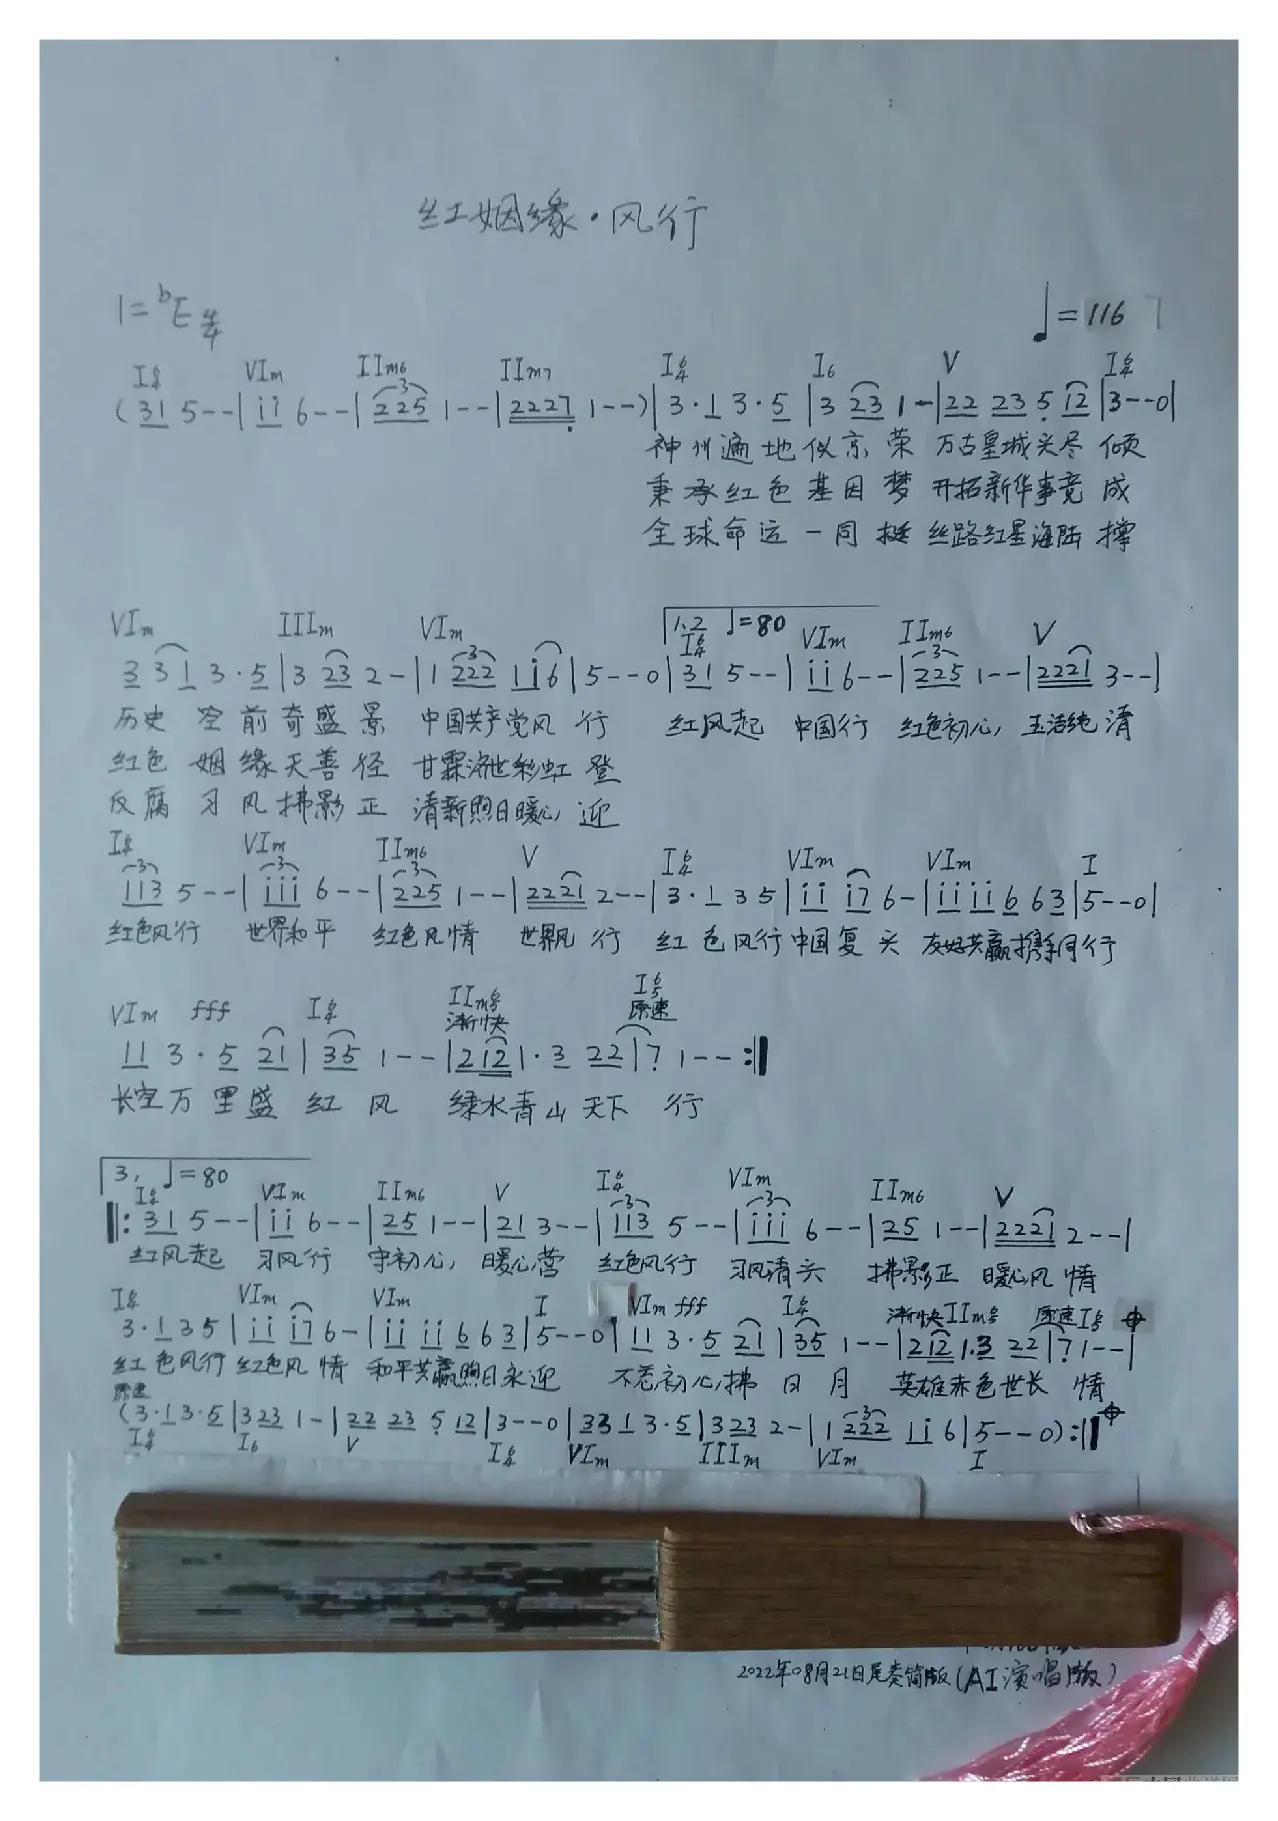 红姻缘·风行
1=ᵇE 4/4 ♩=116
I6/4 VIm IIm6 IIm7 I6/4 I6 V I6/4
(31 5--|i̇i̇ 6--|225 1--|2227̣ 1--)|3·1 3·5|3 23 1-|22 23 5̣ 12|3--0|
神州遍地似京荣 万古皇城头尽倾
秉承红色基因梦 开拓新华事竟成
全球命运一同挺 丝路红星海陆撑
VIm IIIm VIm 1.2 ♩=80 I6/4 VIm IIm6 V
3 31 3·5|3 23 2-|1 222 1i̇6|5--0|31 5--|i̇i̇ 6--|225 1--|2221 3--|
历史空前奇盛景 中国共产党风行 红风起 中国行 红色初心,玉洁纯清
红色姻缘天善径 甘霖洛世彩虹登
反腐习风拂影正 清新煦日暖心迎
I6/4 VIm IIm6 V I6/4 VIm VIm I
113 5--|i̇i̇i̇ 6--|225 1--|2221 2--|3·1 3 5|i̇i̇ i̇7 6-|i̇i̇ i̇i̇ 6 63|5--0|
红色风行 世界和平 红色风情 世界风行 红色风行中国复头 友好共赢携手同行
VIm fff I6/4 IIm6/5 渐快 I6/5 原速
11 3·5 21|35 1--|212 1·3 22|7̣ 1--:‖
长空万里盛红风 绿水青山天下行
3. ♩=80
I6/4 VIm IIm6 V I6/4 VIm IIm6 V
‖:31 5--|i̇i̇ 6--|25 1--|21 3--|113 5--|i̇i̇i̇ 6--|25 1--|2221 2--|
红风起 习风行 守初心,暖心营 红色风行 习风清头 拂影正 暖心风情
I6/4 VIm VIm I VIm fff I6/4 渐快IIm6/5 原速I6/5 𝄌
3·1 3 5|i̇i̇ i̇7 6-|i̇i̇ i̇i̇ 6 63|5--0|11 3·5 21|35 1--|212 1·3 22|7̣ 1--|
红色风行红色风情 和平共赢煦日永迎 不忘初心拂日月 英雄赤色世长情
原速
(3·1 3·5|323 1-|22 23 5̣ 12|3--0|33 1 3·5|323 2-|1 222 1i̇ 6|5--0):‖ 𝄌
I6/4 I6 V I6/4 VIm IIIm VIm I
2022年08月21日尾奏简版(AI演唱版)